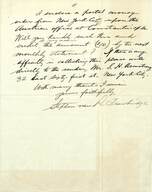 I enclose a postal money
order from New York City upon the
American office at Constantinople.
Will you kindly cash this and
credit the amount
by the next
monthly statement? If there is any
difficulty in collecting this please write
directly to the sender, Mr. L. H.
32 East Sixty first St. New York City.
With many thanks I am
yours faithfully